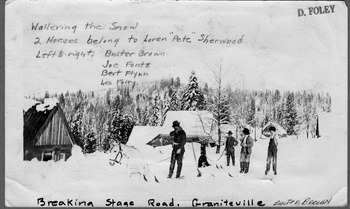 D. FOLEY
Wallering the Snow
2 Horses belong to Loren "Pete" Sherwood
Left to right; Buster Brown
Joe Fontz
Bert Flynn
Leo Foley
Breaking Stage Road, Graniteville
BUSTER BROWN